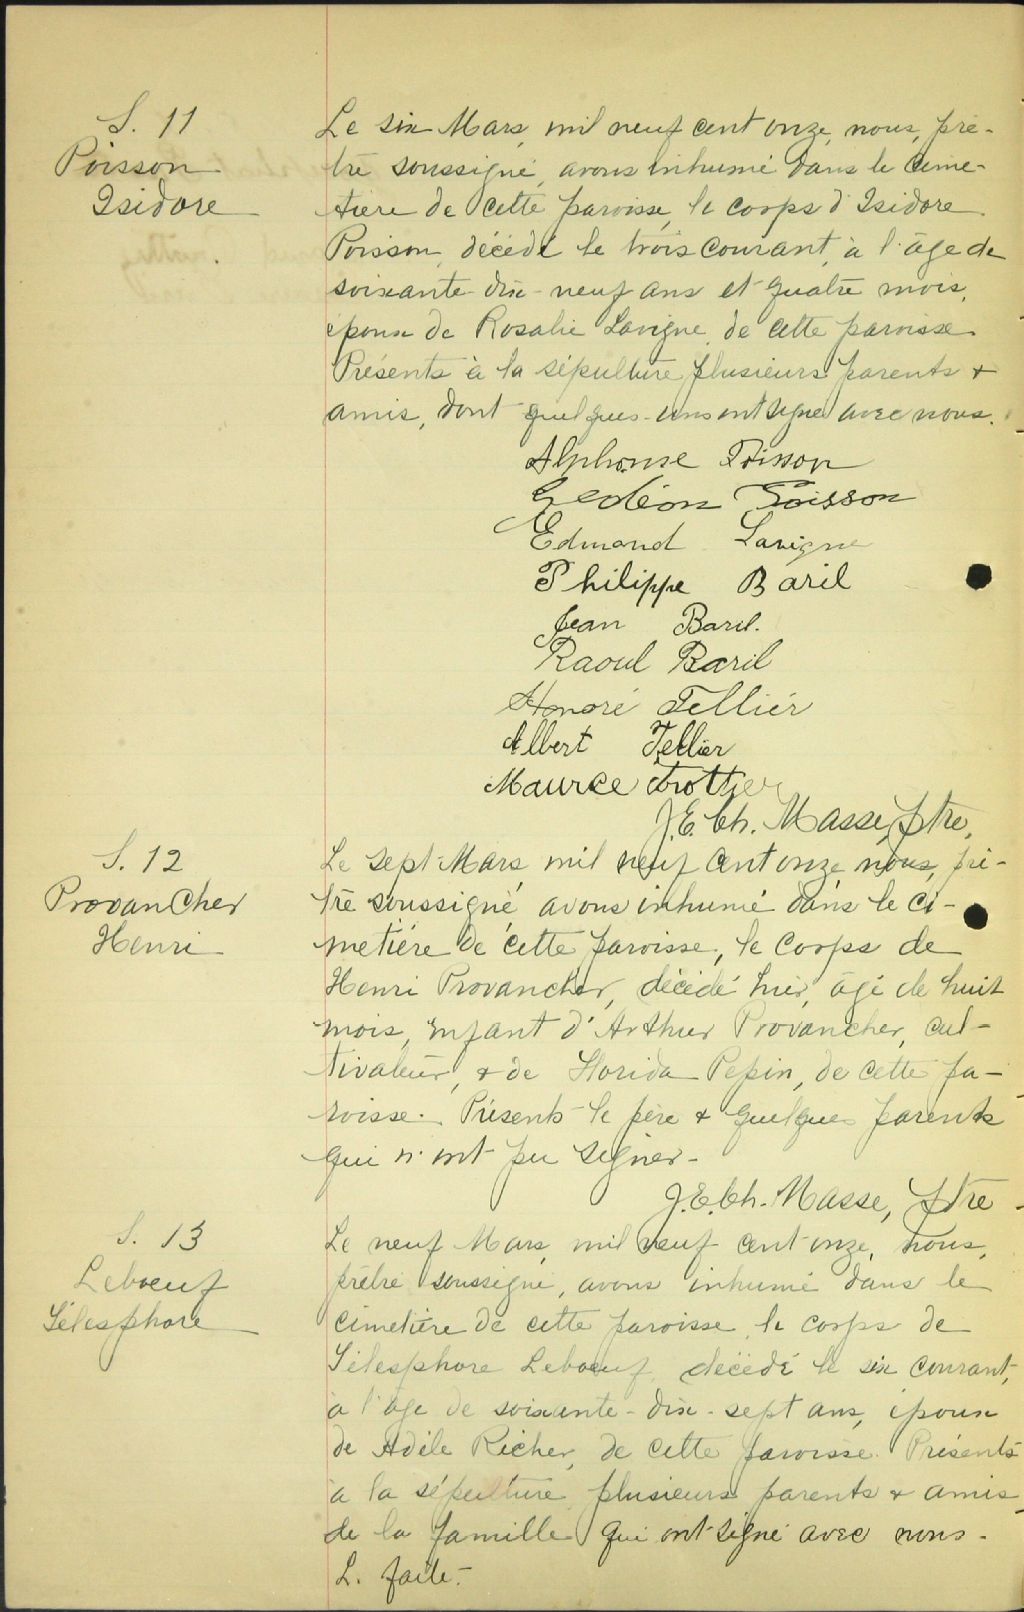 S. 11
Poisson
Isidore
Le six Mars, mil neuf cent onze, nous, prê-
tre soussigné, avons inhumé dans le cime-
tière de cette paroisse, le corps d'Isidore
Poisson, décédé le trois courant, à l'âge de
soixante-dix-neuf ans et quatre mois,
époux de Rosalie Lavigne, de cette paroisse.
Présents à la sépulture plusieurs parents +
amis, dont quelques-uns ont signé avec nous.
Alphonse Poisson
Gedéon Poisson
Edmond Lavigne
Philippe Baril
Jean Baril.
Raoul Baril
Honoré Tellier
Albert Tellier
Maurice Trottier
J.E. Ch. Masse, Ptre,
S. 12
Provancher
Henri
Le sept Mars mil neuf cent onze, nous, prê-
tre soussigné, avons inhumé dans le ci-
metière de cette paroisse, le corps de
Henri Provancher, décédé hier, âgé de huit
mois, enfant d'Arthur Provancher, cul-
tivateur, + de Florida Pepin, de cette pa-
roisse. Présents le père + quelques parents
qui n'ont pu signer-
J.E. Ch. Masse, Ptre
S. 13
Leboeuf
Télesphore
Le neuf Mars, mil neuf cent onze, nous,
prêtre soussigné, avons inhumé dans le
cimetière de cette paroisse, le corps de
Télesphore Leboeuf, décédé le six courant,
à l'âge de soixante-dix-sept ans, époux
de Adèle Richer, de cette paroisse. Présents
à la sépulture, plusieurs parents + amis
de la famille qui ont signé avec nous-
L. faite.-